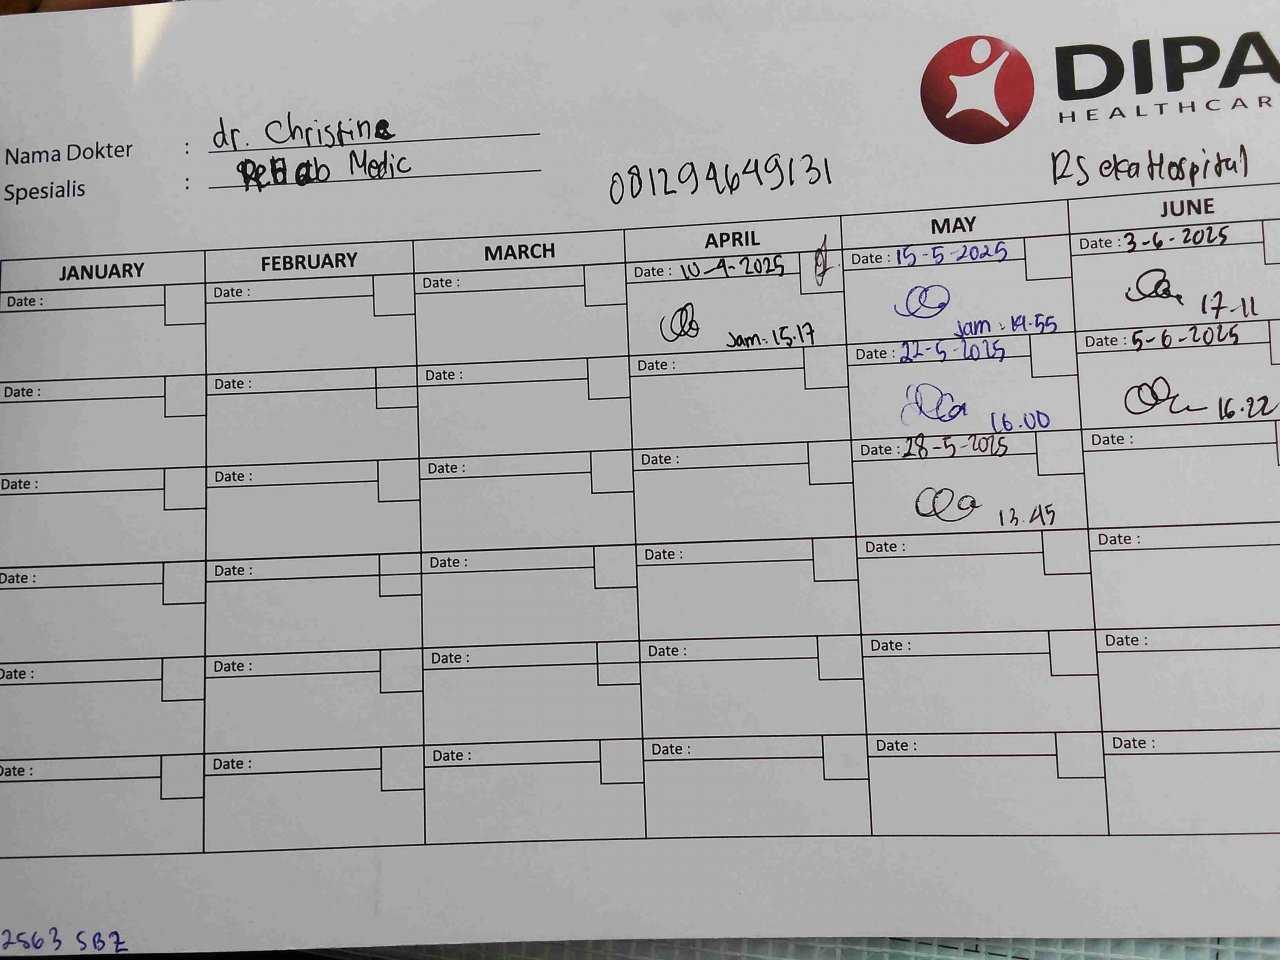 DIPA
HEALTHCAR
Nama Dokter : dr. Christine
Spesialis : Rehab Medic
081294649131
RS eka Hospital
JANUARY FEBRUARY MARCH APRIL MAY JUNE
Date : Date : Date : Date : 10-4-2025 Date : 15-5-2025 Date : 3-6-2025
Jam: 15.17 jam: 14.55 17-11
Date : Date : Date : Date : Date : 22-5-2025 Date : 5-6-2025
16.00 16.22
Date : Date : Date : Date : Date : 28-5-2025 Date :
13.45
Date : Date : Date : Date : Date : Date :
Date : Date : Date : Date : Date : Date :
Date : Date : Date : Date : Date : Date :
2563 SBZ